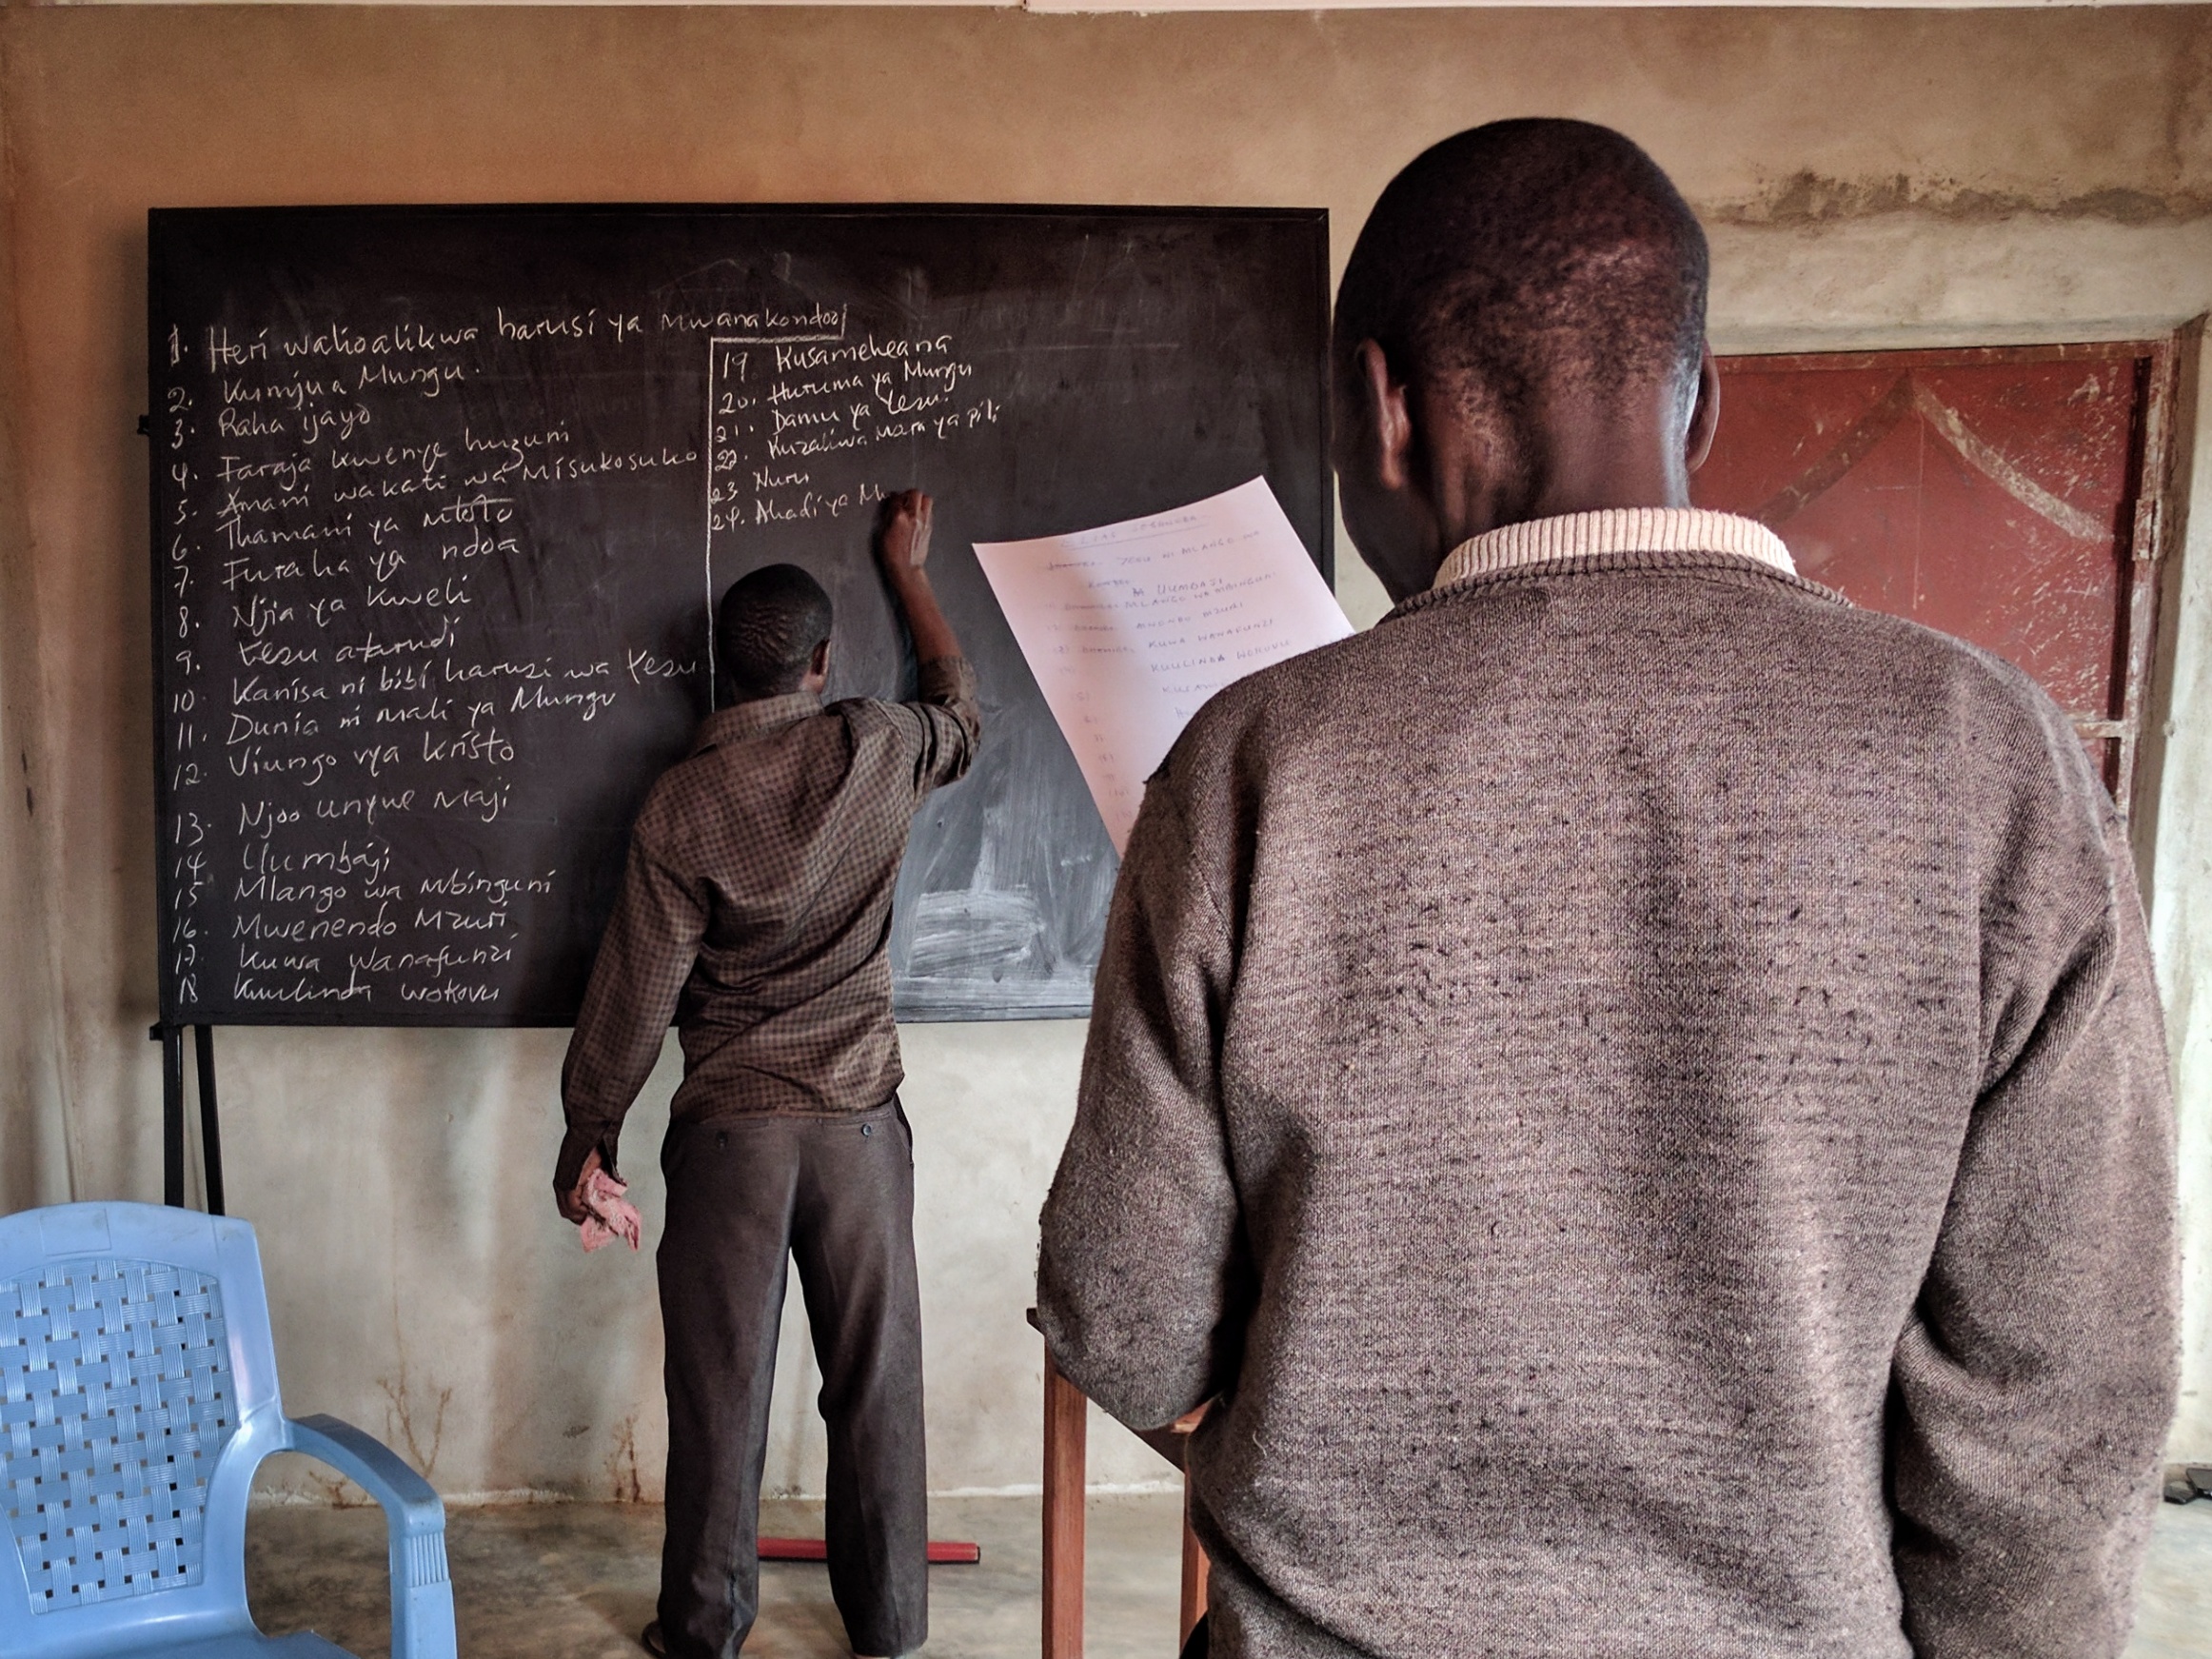 1. Heri walioalikwa harusi ya Mwanakondoo
2. Kumjua Mungu.
3. Raha ijayo
4. Faraja kwenye huzuni
5. Amani wakati wa Misukosuko
6. Thamani ya mtoto
7. Furaha ya ndoa
8. Njia ya Kweli
9. Yesu atarudi
10. Kanisa ni bibi harusi wa Yesu
11. Dunia ni mali ya Mungu
12. Viungo vya Kristo
13. Njoo unywe maji
14 Uumbaji
15 Mlango wa mbinguni
16. Mwenendo Mzuri
17. Kuwa Wanafunzi
18 Kuulinda wokovu
19. Kusameheana
20. Huruma ya Mungu
21. Damu ya Yesu.
22. Kuzaliwa mara ya pili
23 Nuru
24. Ahadi ya M
YESU NI MLANGO WA
UUMBAJI
MLANGO WA MBINGUNI
MZURI
KUWA WANAFUNZI
KUULINDA WOKOVU